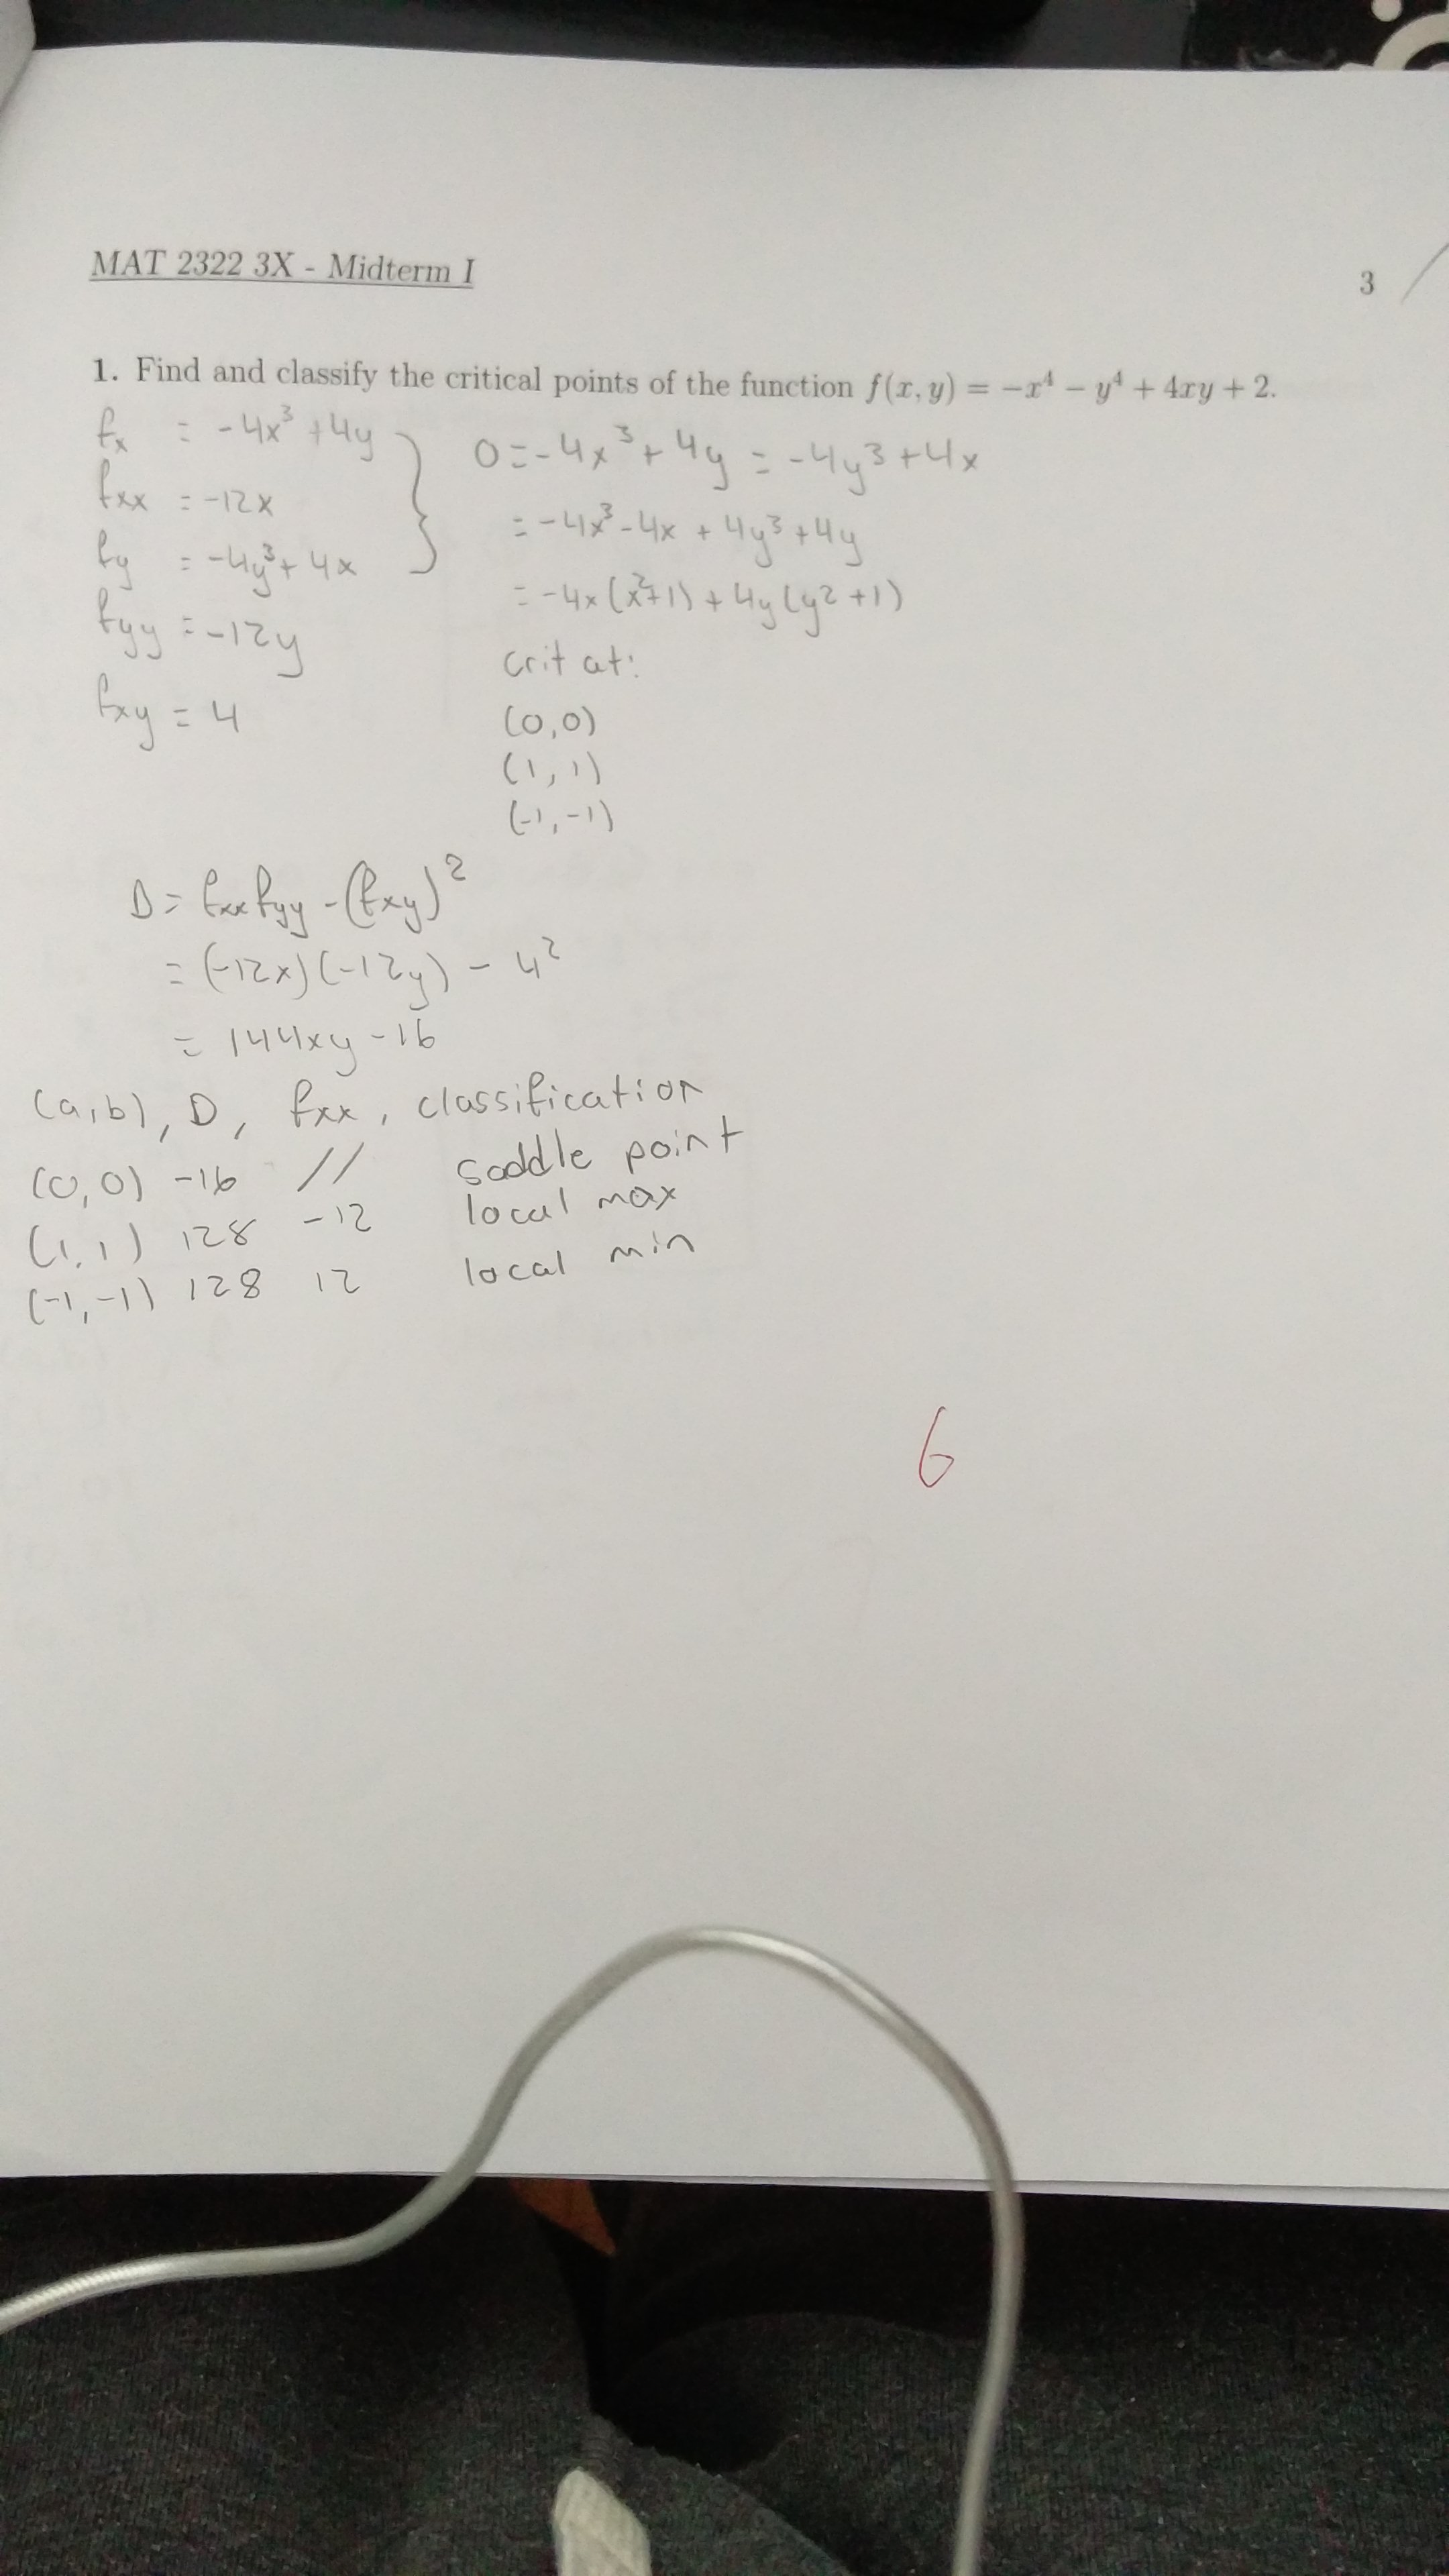 MAT 2322 3X - Midterm I
3
1. Find and classify the critical points of the function f(x, y) = −x⁴ − y⁴ + 4xy + 2.
fx = -4x³ + 4y
fxx = -12x
fy = -4y³ + 4x
fyy = -12y
fxy = 4
0 = -4x³ + 4y = -4y³ + 4x
= -4x³ - 4x + 4y³ + 4y
= -4x(x²+1) + 4y(y²+1)
crit at:
(0,0)
(1, 1)
(-1, -1)
D = fxx fyy - (fxy)²
= (-12x)(-12y) - 4²
= 144xy - 16
(a,b), D, fxx, classification
(0,0) -16 // saddle point
(1,1) 128 -12 local max
(-1,-1) 128 12 local min
6